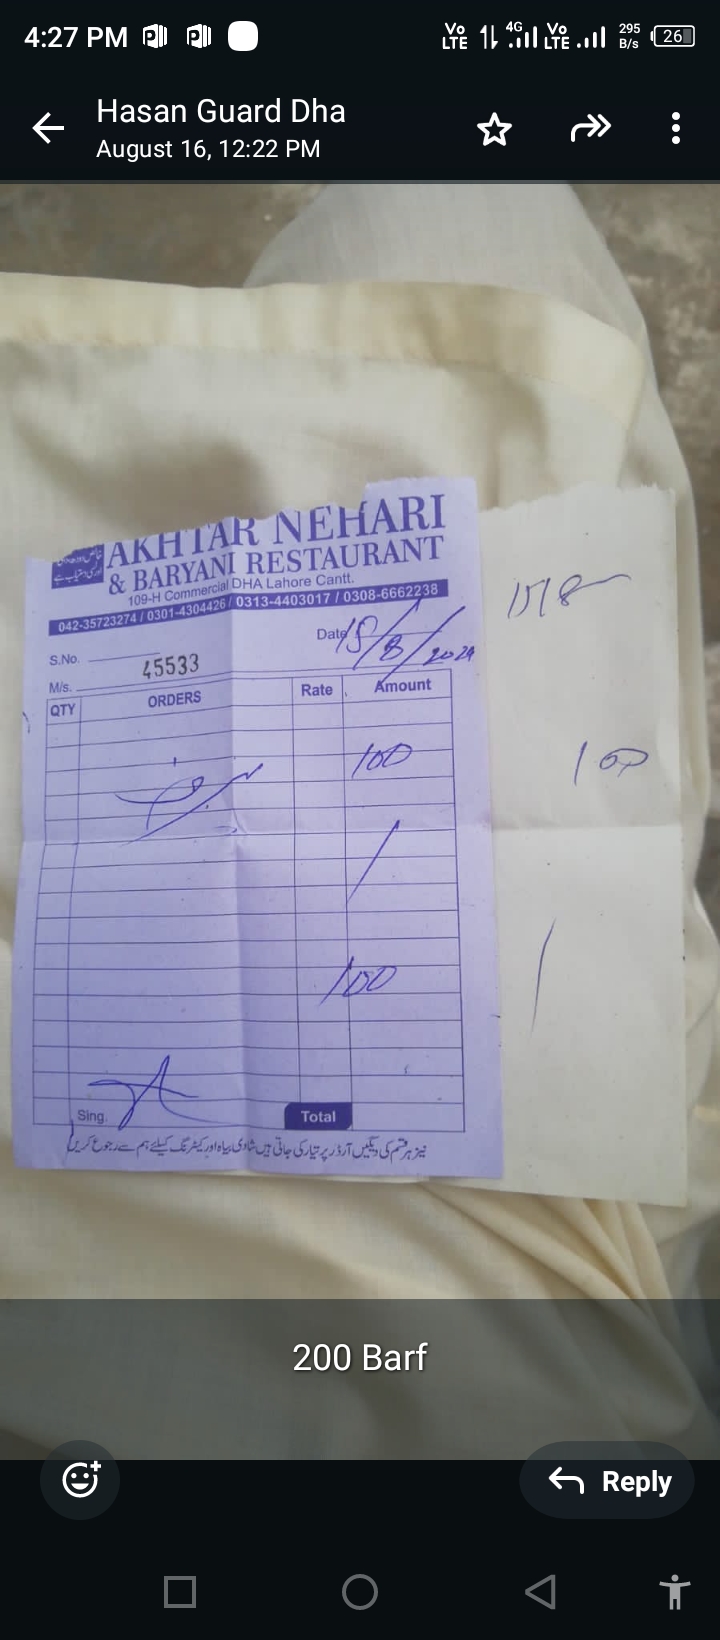 4:27 PM
Vo LTE 4G Vo LTE 295 B/s 26
Hasan Guard Dha
August 16, 12:22 PM
AKHTAR NEHARI
& BARYANI RESTAURANT
109-H Commercial DHA Lahore Cantt.
042-35723274 / 0301-4304426 / 0313-4403017 / 0308-6662238
Date 15/8/2024
S.No.
45533
M/s.
QTY ORDERS Rate Amount
برف 100
100
Sing. Total
نیز ہر قسم کی دیگیں آرڈر پر تیار کی جاتی ہیں شادی بیاہ اور کیٹرنگ کیلئے ہم سے رجوع کریں
15/8
100
200 Barf
Reply